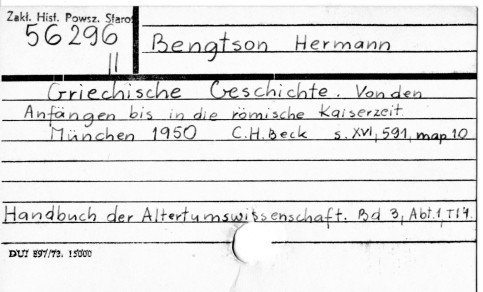 Zakł. Hist. Powsz. Staroż
56296
II
Bengtson Hermann
Griechische Geschichte. Von den
Anfängen bis in die römische Kaiserzeit.
München 1950 C.H.Beck s. XVI, 591, map 10
Handbuch der Altertumswissenschaft. Bd 3, Abt. 1, T1 4.
DUJ 897/73. 15000